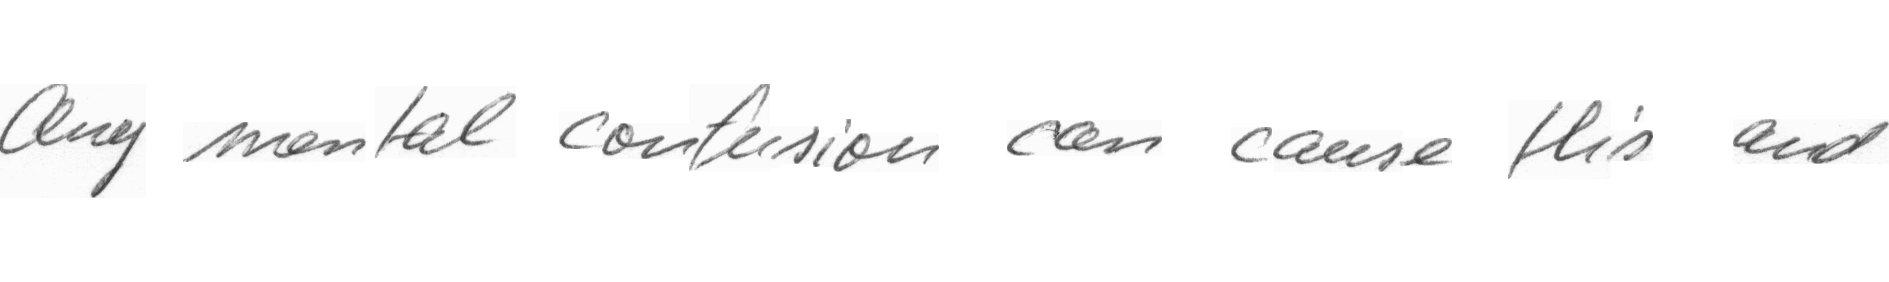 Any mental confusion can cause this and